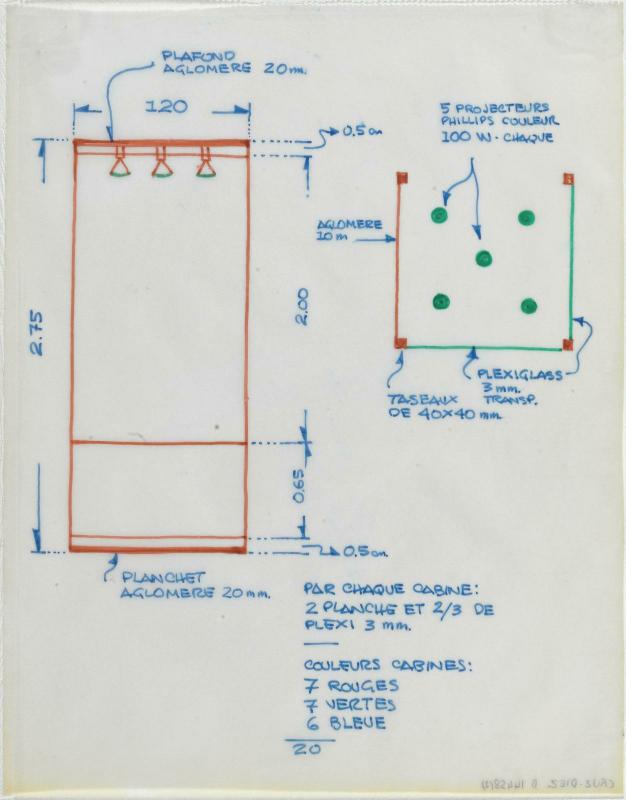 PLAFOND
AGLOMERE 20 mm.
120
0.5 cm
5 PROJECTEURS
PHILLIPS COULEUR
100 W - CHAQUE
AGLOMERE
10 m
2.75
2.00
PLEXIGLASS
3 mm.
TRANSP.
TASEAUX
DE 40X40 mm.
0.65
0.5 cm.
PLANCHET
AGLOMERE 20 mm.
PAR CHAQUE CABINE:
2 PLANCHE ET 2/3 DE
PLEXI 3 mm.
COULEURS CABINES:
7 ROUGES
7 VERTES
6 BLEUE
20